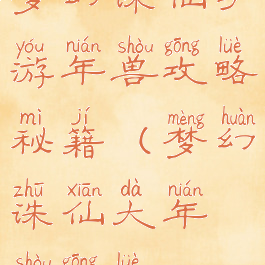 yóu nián shòu gōng lüè
游年兽攻略
mì jí mèng huàn
秘籍(梦幻
zhū xiān dà nián
诛仙大年
shòu gōng lüè